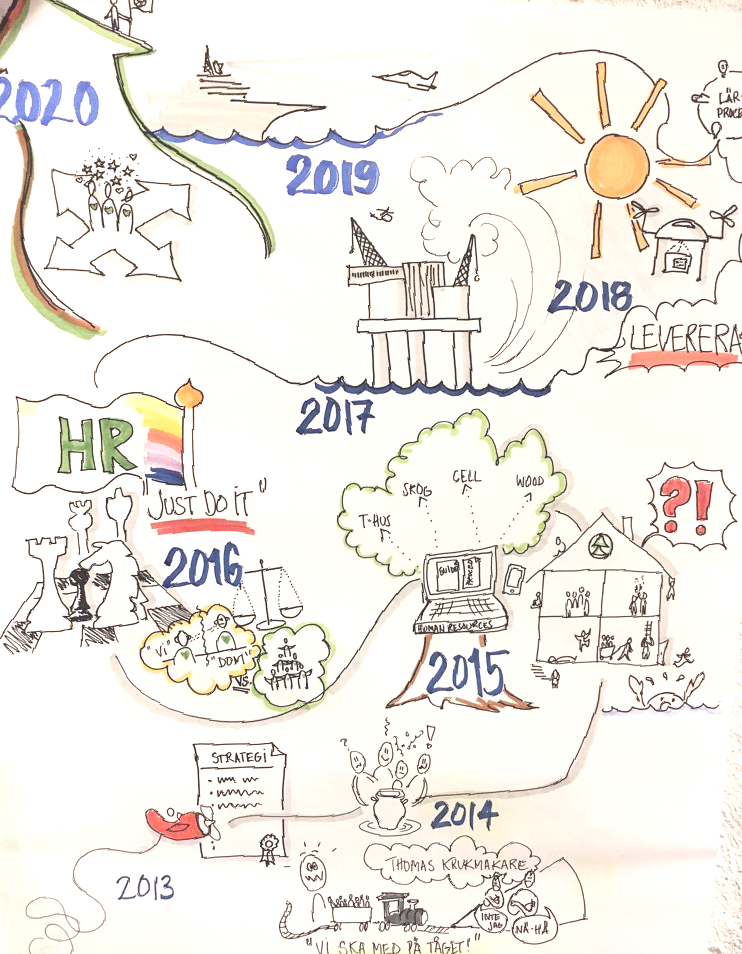 2020
2019
LÄR-
PROCE
2018
LEVERERA
2017
HR
"JUST DO IT"
2016
T-HUS
SKOG
CELL
WOOD
?!
HUMAN RESOURCES
2015
"VI"
"DOM"
VS.
STRATEGI
2014
2013
THOMAS KRUKMAKARE
INTE
JAG
NÄ-HÄ
"VI SKA MED PÅ TÅGET!"